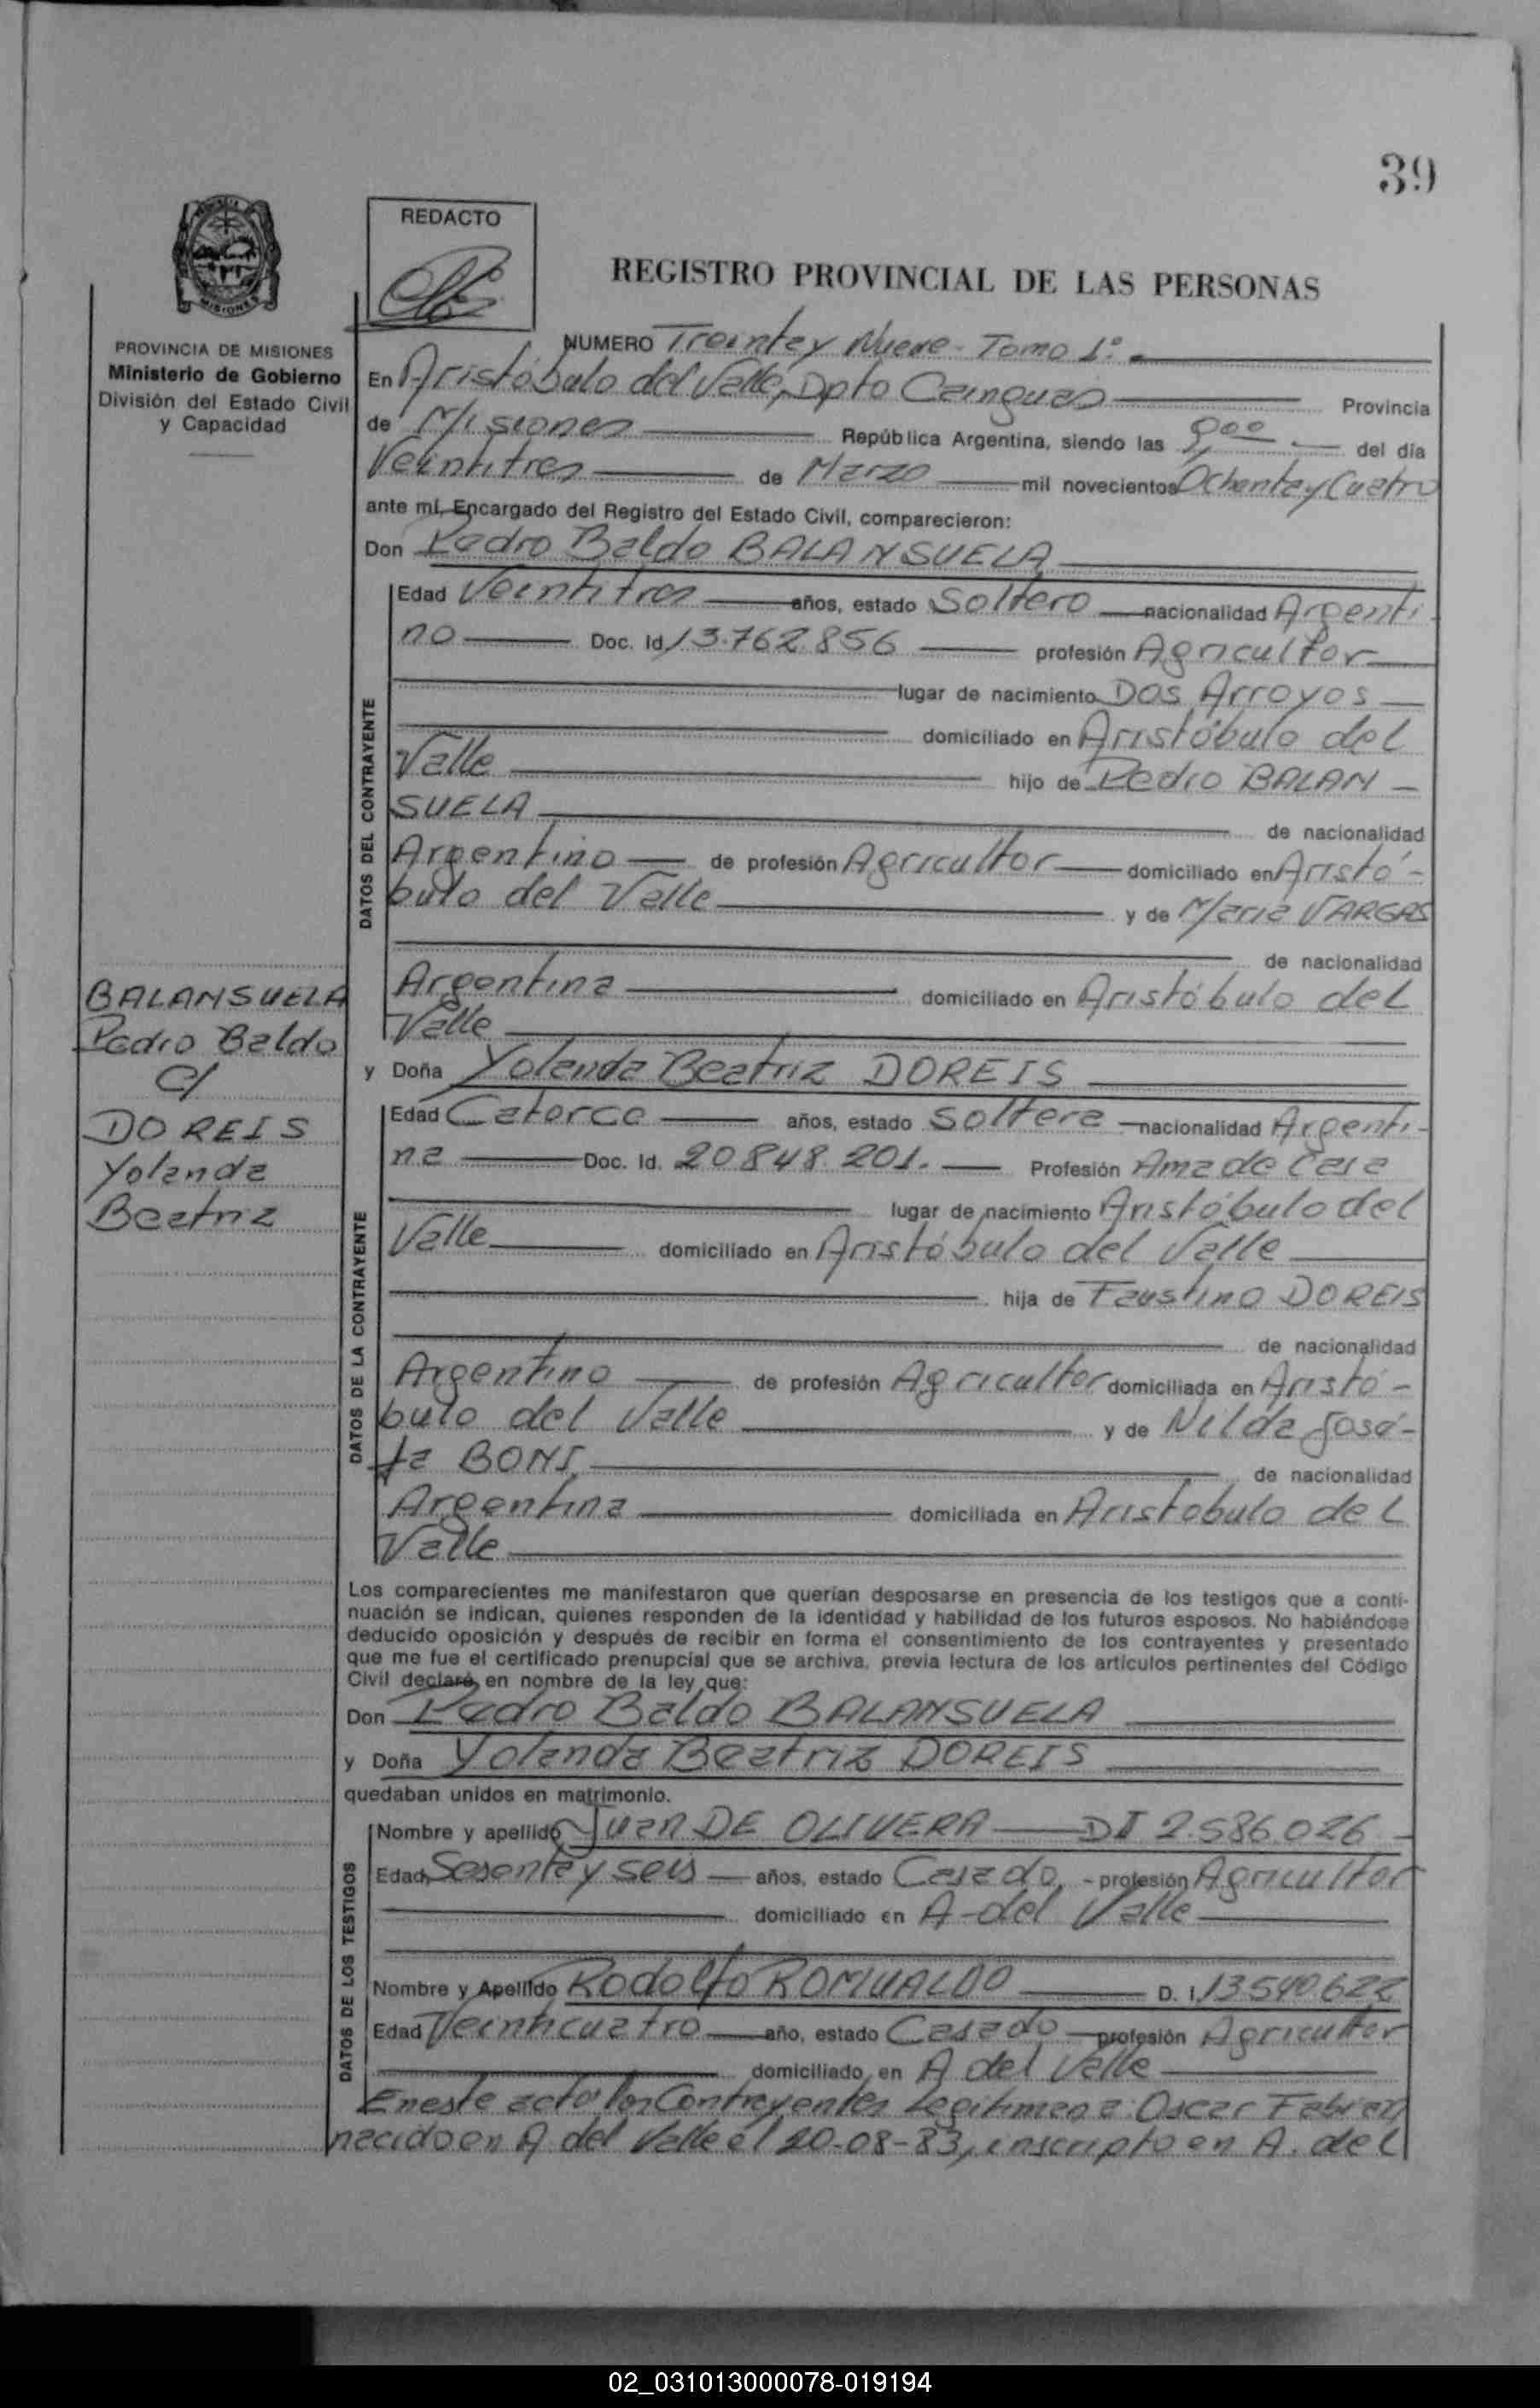 39
REDACTO
REGISTRO PROVINCIAL DE LAS PERSONAS
MISIONES
PROVINCIA DE MISIONES
Ministerio de Gobierno
División del Estado Civil
y Capacidad
NUMERO Treinta y Nueve - Tomo 1º.
En Aristóbulo del Valle, Dpto Cainguas Provincia
de Misiones República Argentina, siendo las 9,00 del día
Veintitres de Marzo mil novecientos Ochenta y Cuatro
ante mí, Encargado del Registro del Estado Civil, comparecieron:
Don Pedro Baldo BALANSUELA
Edad Veintitres años, estado Soltero nacionalidad Argenti-
no Doc. Id. 13.762.856 profesión Agricultor
lugar de nacimiento Dos Arroyos
domiciliado en Aristóbulo del
Valle hijo de Pedro BALAN-
SUELA de nacionalidad
Argentino de profesión Agricultor domiciliado en Aristó-
bulo del Valle y de Maria VARGAS
de nacionalidad
Argentina domiciliado en Aristóbulo del
Valle
DATOS DEL CONTRAYENTE
BALANSUELA
Pedro Baldo
c/
DOREIS
Yolanda
Beatriz
y Doña Yolanda Beatriz DOREIS
Edad Catorce años, estado Soltera nacionalidad Argenti-
na Doc. Id. 20848.201. Profesión Ama de Casa
lugar de nacimiento Aristóbulo del
Valle domiciliado en Aristóbulo del Valle
hija de Faustino DOREIS
de nacionalidad
Argentino de profesión Agricultor domiciliada en Aristó-
bulo del Valle y de Nilda José-
fa BONI de nacionalidad
Argentina domiciliada en Aristobulo del
Valle
DATOS DE LA CONTRAYENTE
Los comparecientes me manifestaron que querían desposarse en presencia de los testigos que a conti-
nuación se indican, quienes responden de la identidad y habilidad de los futuros esposos. No habiéndose
deducido oposición y después de recibir en forma el consentimiento de los contrayentes y presentado
que me fue el certificado prenupcial que se archiva, previa lectura de los artículos pertinentes del Código
Civil declaré, en nombre de la ley que:
Don Pedro Baldo BALANSUELA
y Doña Yolanda Beatriz DOREIS
quedaban unidos en matrimonio.
Nombre y apellido Juan DE OLIVERA DI 2.586.026
Edad Sesenta y seis años, estado Casado profesión Agricultor
domiciliado en A-del Valle
Nombre y Apellido Rodolfo ROMUALDO D. I. 13540622
Edad Veinticuatro año, estado Casado profesión Agricultor
domiciliado en A del Valle
DATOS DE LOS TESTIGOS
En este acto los Contrayentes Legitiman a: Oscar Fabian
nacido en A del Valle el 20-08-83, inscripto en A. del
02_031013000078-019194